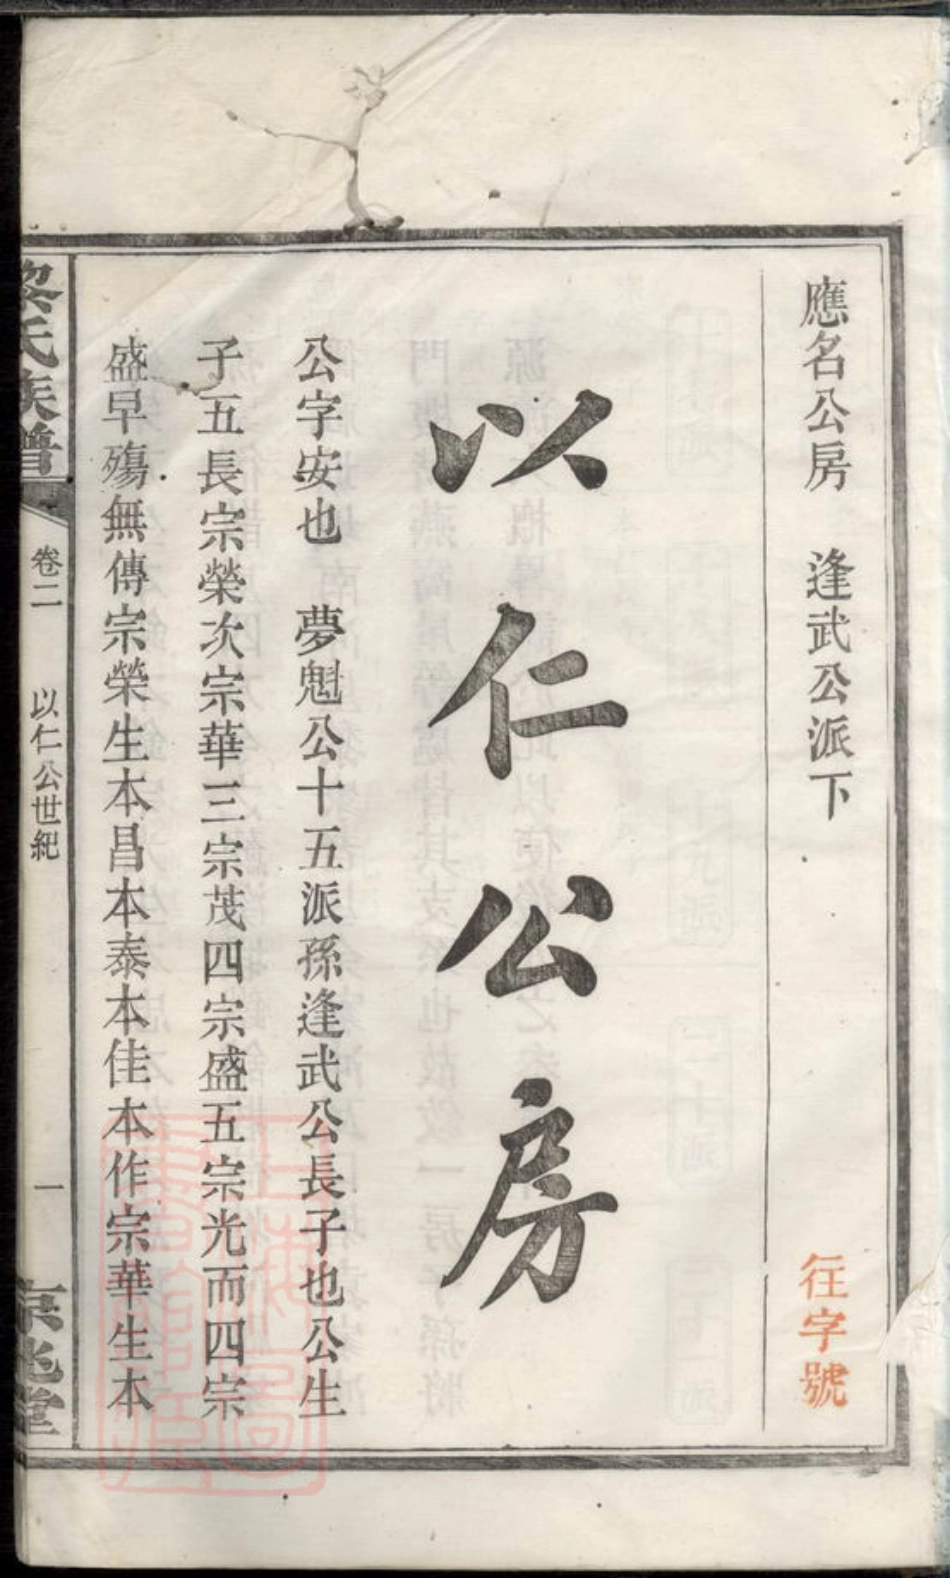 應名公房　逢武公派下
往字號
以仁公房
公字安也　夢魁公十五派孫逢武公長子也公生
子五長宗榮次宗華三宗茂四宗盛五宗光而四宗
盛早殤無傳宗榮生本昌本泰本佳本作宗華生本
黎氏族譜
卷二
以仁公世紀
一
京兆堂